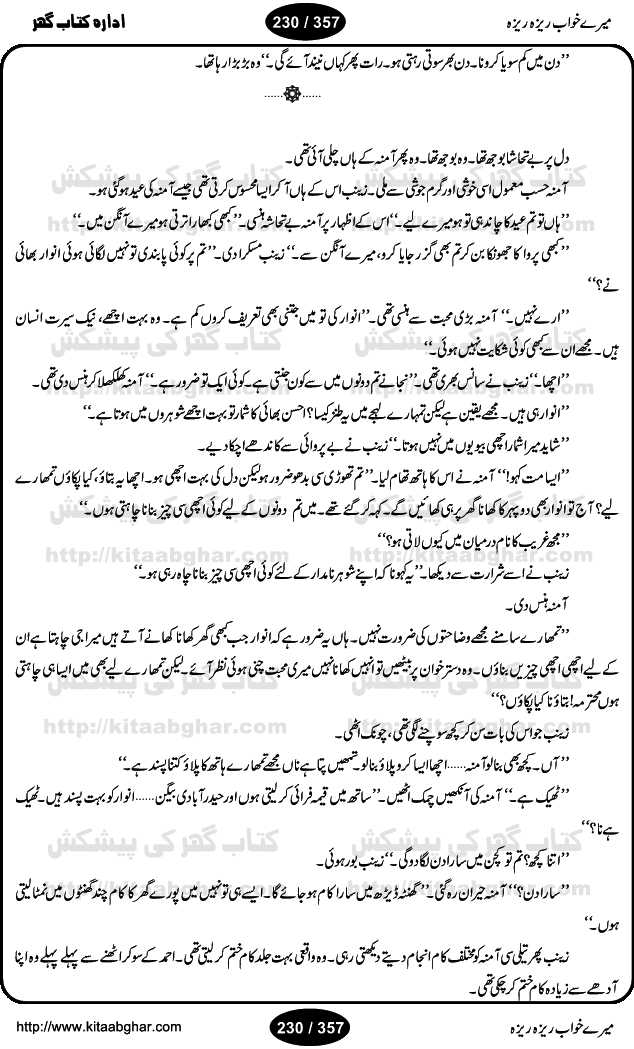 میرے خواب ریزہ ریزہ
230 / 357
ادارہ کتاب گھر
’’دن میں کم سویا کرو نا۔ دن بھر سوتی رہتی ہو۔ رات پھر کہاں نیند آئے گی۔‘‘ وہ بڑبڑا رہا تھا۔
...... ......
دل پر بے تحاشا بوجھ تھا۔ وہ بوجھ تھا۔ وہ پھر آمنہ کے ہاں چلی آئی تھی۔
آمنہ حسب معمول اسی خوشی اور گرم جوشی سے ملی۔ زینب اس کے ہاں آ کر ایسا محسوس کرتی تھی جیسے آمنہ کی عید ہو گئی ہو۔
’’ہاں تو تم عید کا چاند ہی تو ہو میرے لیے۔‘‘ اس کے اظہار پر آمنہ بے تحاشہ ہنسی۔ ’’کبھی کبھار اترتی ہو میرے آنگن میں۔‘‘
’’کبھی پروا کا جھونکا بن کر تم بھی گزر جایا کرو، میرے آنگن سے۔‘‘ زینب مسکرا دی۔ ’’تم پر کوئی پابندی تو نہیں لگائی ہوئی انوار بھائی
نے؟‘‘
’’ارے نہیں۔‘‘ آمنہ بڑی محبت سے ہنسی تھی۔ ’’انوار کی تو میں جتنی بھی تعریف کروں کم ہے۔ وہ بہت اچھے، نیک سیرت انسان
ہیں۔ مجھے ان سے کبھی کوئی شکایت نہیں ہوئی۔‘‘
’’اچھا۔‘‘ زینب نے سانس بھری تھی۔ ’’نجانے تم دونوں میں سے کون جنتی ہے۔ کوئی ایک تو ضرور ہے۔‘‘ آمنہ کھلکھلا کر ہنس دی تھی۔
’’انوار ہی ہیں۔ مجھے یقین ہے لیکن تمہارے لہجے میں یہ طنز کیسا؟ احسن بھائی کا شمار تو بہت اچھے شوہروں میں ہوتا ہے۔‘‘
’’شاید میرا شمار اچھی بیویوں میں نہیں ہوتا۔‘‘ زینب نے بے پروائی سے کاندھے اچکا دیے۔
’’ایسا مت کہو!‘‘ آمنہ نے اس کا ہاتھ تھام لیا۔ ’’تم تھوڑی سی بدھو ضرور ہو لیکن دل کی بہت اچھی ہو۔ اچھا یہ بتاؤ، کیا پکاؤں تمہارے
لیے؟ آج تو انوار بھی دوپہر کا کھانا گھر پر ہی کھائیں گے۔ کہہ کر گئے تھے۔ میں تم دونوں کے لیے کوئی اچھی سی چیز بنانا چاہتی ہوں۔‘‘
’’مجھ غریب کا نام درمیان میں کیوں لاتی ہو؟‘‘
زینب نے اسے شرارت سے دیکھا۔ ’’یہ کہو نا کہ اپنے شوہر نامدار کے لئے کوئی اچھی سی چیز بنانا چاہ رہی ہو۔‘‘
آمنہ ہنس دی۔
’’تمہارے سامنے مجھے وضاحتوں کی ضرورت نہیں۔ ہاں یہ ضرور ہے کہ انوار جب کبھی گھر کھانا کھانے آتے ہیں میرا جی چاہتا ہے ان
کے لیے اچھی اچھی چیزیں بناؤں۔ وہ دسترخوان پر بیٹھیں تو انہیں کھانا نہیں میری محبت چنی ہوئی نظر آئے۔ لیکن تمہارے لیے بھی میں ایسا ہی چاہتی
ہوں محترمہ! بتاؤ نا کیا پکاؤں؟‘‘
زینب جو اس کی بات سن کر کچھ سوچنے لگی تھی، چونک اٹھی۔
’’آں۔ کچھ بھی بنا لو آمنہ...... اچھا ایسا کرو پلاؤ بنا لو۔ تمہیں پتا ہے ناں مجھے تمہارے ہاتھ کا پلاؤ کتنا پسند ہے۔‘‘
’’ٹھیک ہے۔‘‘ آمنہ کی آنکھیں چمک اٹھیں۔ ’’ساتھ میں قیمہ فرائی کر لیتی ہوں اور حیدر آبادی بیگن...... انوار کو بہت پسند ہیں۔ ٹھیک
ہے نا؟‘‘
’’اتنا کچھ؟ تم تو کچن میں سارا دن لگا دو گی۔‘‘ زینب بور ہوئی۔
’’سارا دن؟‘‘ آمنہ حیران رہ گئی۔ ’’گھنٹہ ڈیڑھ میں سارا کام ہو جائے گا۔ ایسے ہی تو نہیں میں پورے گھر کا کام چند گھنٹوں میں نمٹا لیتی
ہوں۔‘‘
زینب پھر تیلی سی آمنہ کو مختلف کام انجام دیتے دیکھتی رہی۔ وہ واقعی بہت جلد کام ختم کر لیتی تھی۔ احمد کے سو کر اٹھنے سے پہلے پہلے وہ اپنا
آدھے سے زیادہ کام ختم کر چکی تھی۔
کتاب گھر کی پیشکش
http://kitaabghar.com
http://www.kitaabghar.com
230 / 357
میرے خواب ریزہ ریزہ